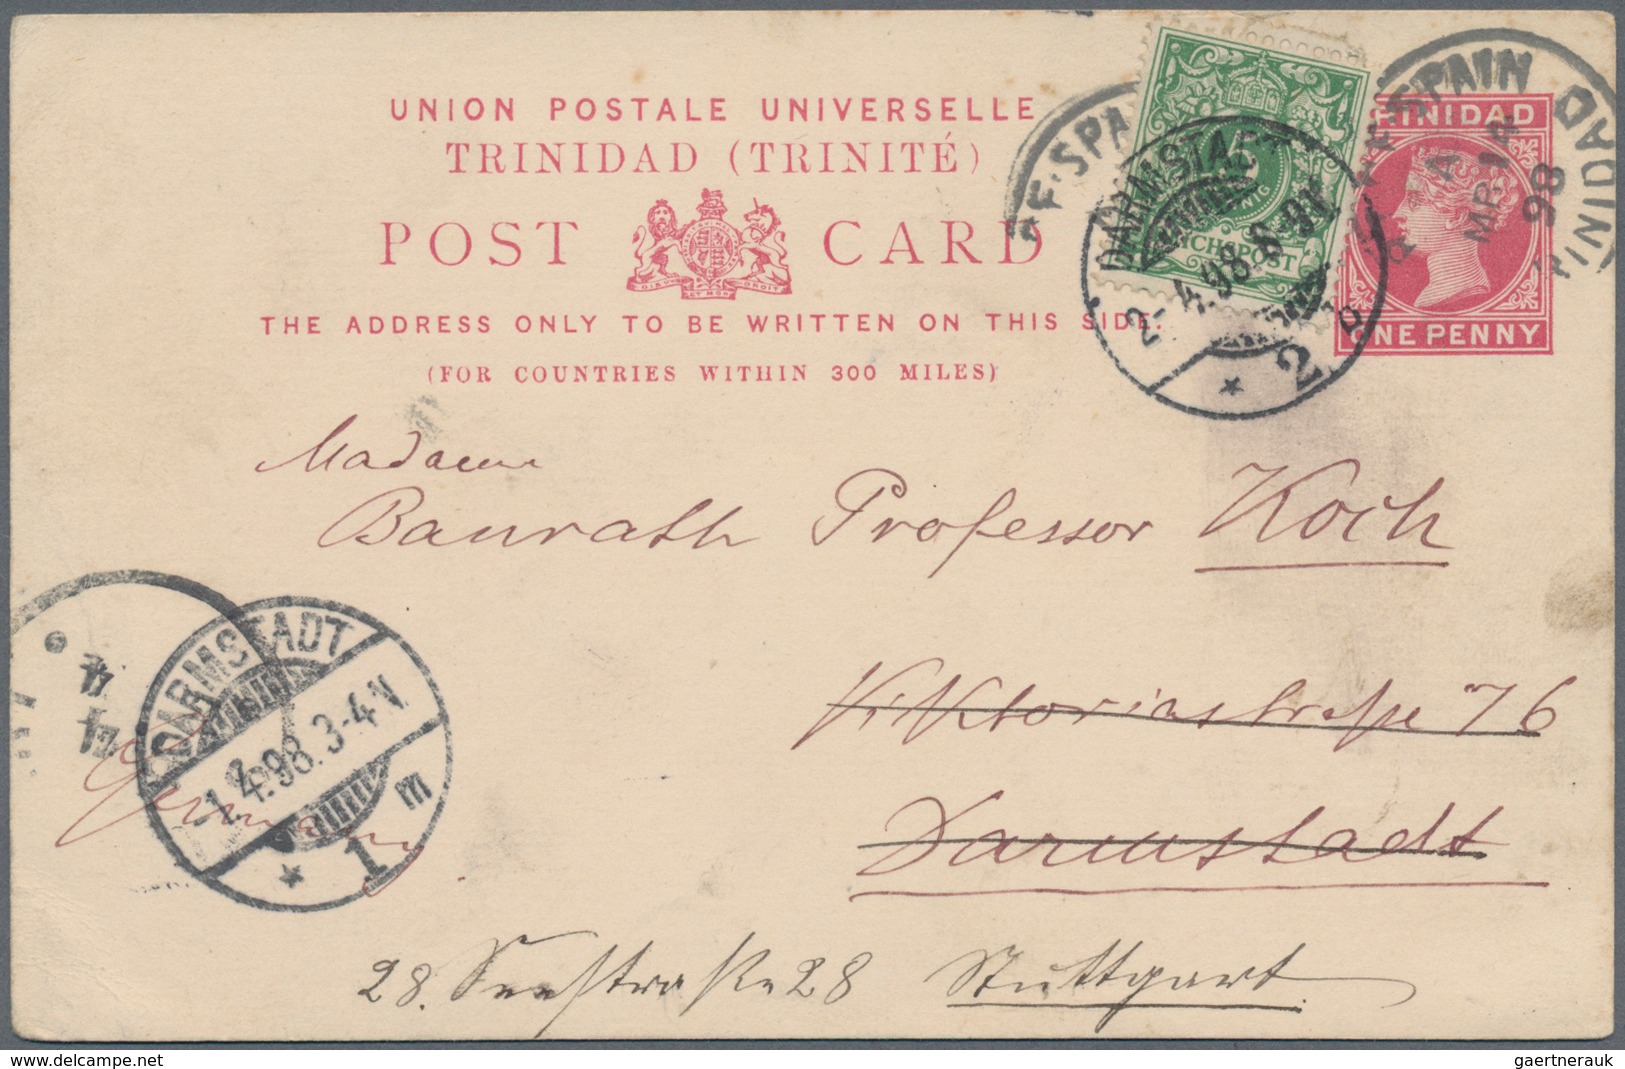 UNION POSTALE UNIVERSELLE
TRINIDAD (TRINITÉ)
POST CARD
DIEU ET MON DROIT
THE ADDRESS ONLY TO BE WRITTEN ON THIS SIDE.
(FOR COUNTRIES WITHIN 300 MILES)
F·SPA
5
DARMSTA
2-4.98.8-9V.
* 2
TRINIDAD
ONE PENNY
F·SPAIN
TRINIDAD
A
98
Madame
Baurath Professor Koch
Viktoriastraße 76
Darmstadt
Germany
DARMSTADT
1.4.98.3-4N.
* 1 m
28. Seestraße 28 Stuttgart
gaertnerauk
www.delcampe.net